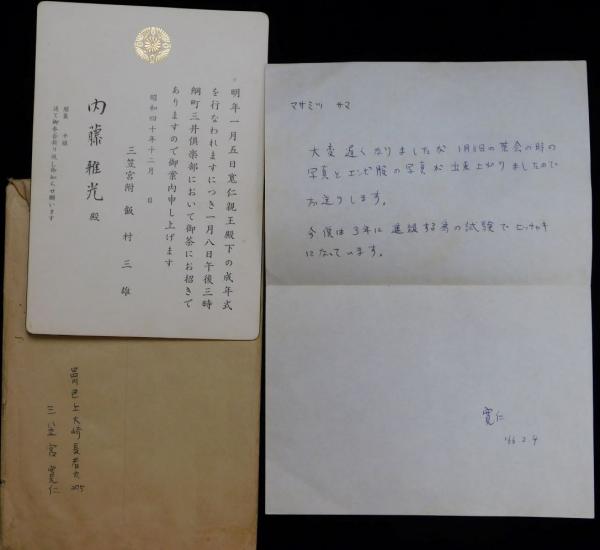 明年一月五日寛仁親王殿下の成年式
を行なわれますにつき一月八日午後三時
綱町三井倶楽部において御茶にお招きで
ありますので御案内申し上げます
昭和四十年十二月 日
三笠宮附 飯村三雄
内藤雅光 殿
服装 平服
追て御本名折り返し御知らせ願います
マサミツ サマ
大変遅くなりましたが1月8日の茶会の時の
写真とエンビ服の写真が出来上がりましたので
お送りします。
今僕は3年に進級する為の試験でヒッチャキ
になっています。
寛仁
'66.2.9
品川区上大崎長者丸205
三笠宮寛仁